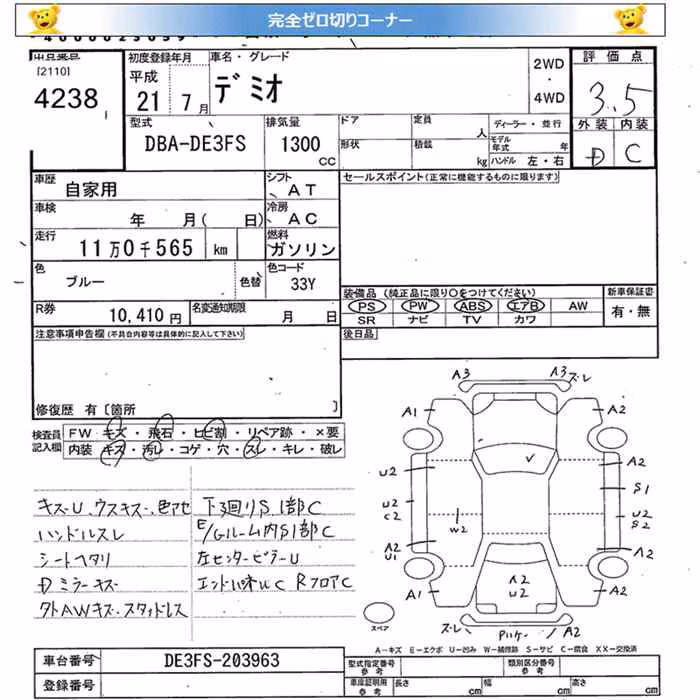 完全ゼロ切りコーナー
[2110]
4238
初度登録年月
平成
21 7 月
車名・グレード
デミオ
2WD
・
4WD
評価点
3.5
外装 内装
D C
型式
DBA-DE3FS
排気量
1300
CC
ドア
形状
定員
人
積載
kg
ディーラー・並行
モデル年式
年
ハンドル 左・右
車歴
自家用
シフト
AT
車検
年 月( 日)
冷房
AC
走行
11万0千565 km
燃料
ガソリン
色
ブルー
色替
色コード
33Y
R券
10,410 円
名変通知期限
月 日
セールスポイント(正常に機能するものに限ります)
装備品(純正品に限り○をつけてください)
PS PW ABS エアB AW
SR ナビ TV カワ
新車保証書
有・無
後日品
注意事項申告欄(不具合内容等は具体的に記入して下さい)
修復歴 有[箇所 ]
検査員記入欄
FW キズ・飛石・ヒビ割・リペア跡・×要
内装 キズ・汚レ・コゲ・穴・スレ・キレ・破レ
キズーU、ウスキズー、色アセ
ハンドルスレ
シートヘタリ
Dミラーキズー
タトAWキズ・スタッドレス
下廻りS1部C
E/Gルーム内S1部C
左センターピラーU
エンドパネルC RフロアC
A3
A3 ズレ
A1
A2
U2
A2
S1
U2
C2
W2
U2
S2
A2
U1
A2
A2
U2
A1
A2
ズレ
A2
スペア
A-キズ E-エクボ U-凹み W-補修跡 S-サビ C-腐食 XX-交換済
車台番号
DE3FS-203963
登録番号
型式指定番号
参考
類別区分番号
参考
車庫証明用
参考
長さ
cm
幅
cm
高さ
cm